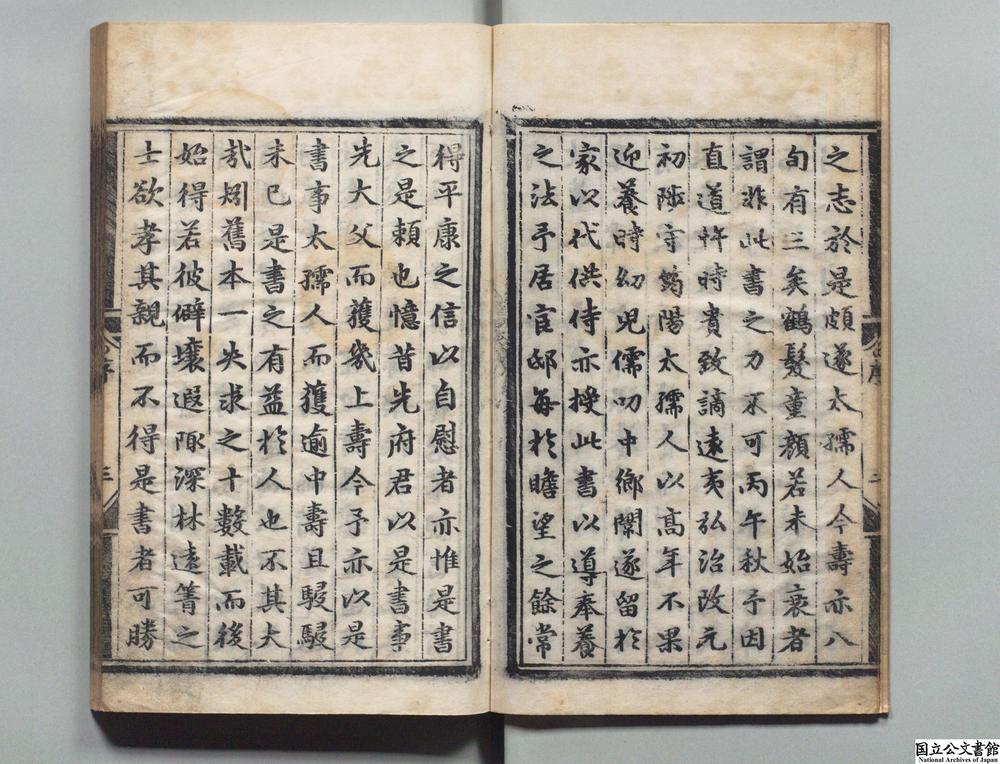 之志於是頗遂太孺人今壽亦八
旬有三矣鶴髮童顔若未始衰者
謂非此書之力不可丙午秋予因
直道忤時貴致謫遠夷弘治改元
初陟守筠陽太孺人以高年不果
迎養時幼兒儒叨中鄉闈遂留於
家以代供侍亦授此書以導奉養
之法予居官邸每於瞻望之餘常
得平康之信以自慰者亦惟是書
之是頼也憶昔先府君以是書事
先大父而獲幾上壽今予亦以是
書事太孺人而獲逾中壽且駸駸
未已是書之有益於人也不其大
哉矧舊本一失求之十數載而後
始得若彼僻壤遐陬深林遠箐之
士欲孝其親而不得是書者可勝
序
二
序
三
国立公文書館
National Archives of Japan